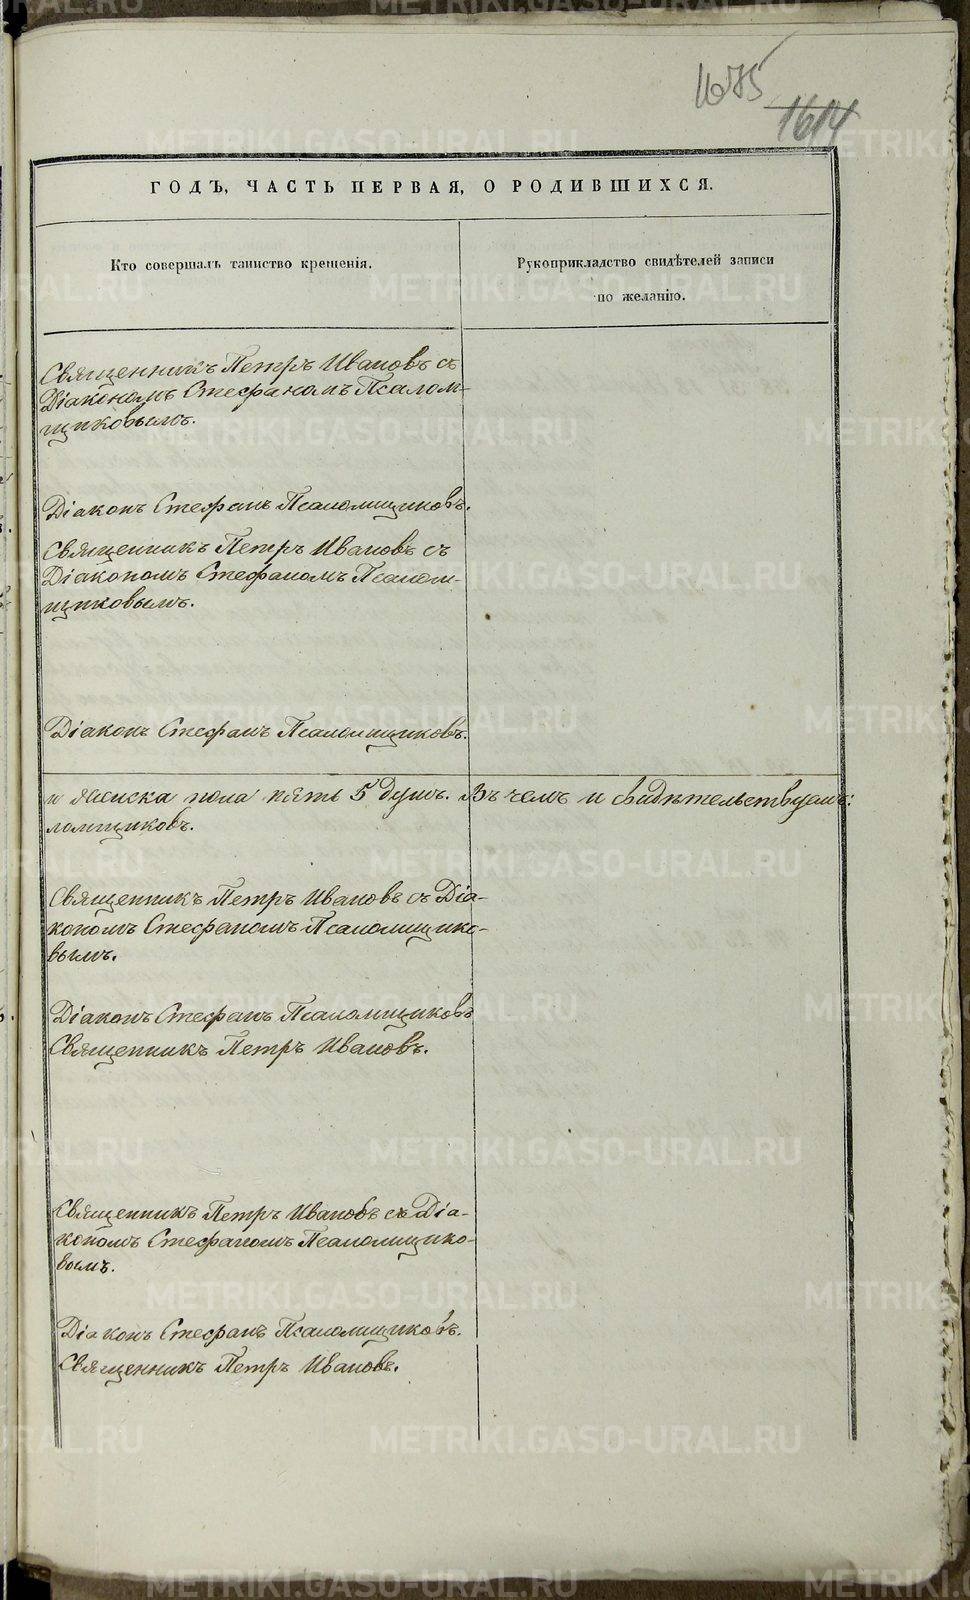 1675
1614
ГОДЪ, ЧАСТЬ ПЕРВАЯ, О РОДИВШИХСЯ.
Кто совершалъ таинство крещенія.
Рукоприкладство свидѣтелей записи
по желанію.
Священникъ Петръ Ивановъ съ
Діакономъ Стефаномъ Псалом-
щиковымъ.
Діаконъ Стефанъ Псаломщиковъ.
Священникъ Петръ Ивановъ съ
Діакономъ Стефаномъ Псалом-
щиковымъ.
Діаконъ Стефанъ Псаломщиковъ.
и женска пола пять 5 душъ. Въ чемъ и свидѣтельствуемъ:
ломщиковъ.
Священникъ Петръ Ивановъ съ Діа-
кономъ Стефаномъ Псаломщико-
вымъ.
Діаконъ Стефанъ Псаломщиковъ
Священникъ Петръ Ивановъ.
Священникъ Петръ Ивановъ съ Діа-
кономъ Стефаномъ Псаломщико-
вымъ.
Діаконъ Стефанъ Псаломщиковъ.
Священникъ Петръ Ивановъ.
METRIKI.GASO-URAL.RU